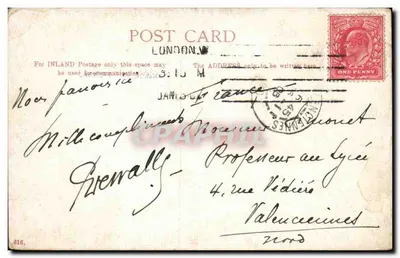 POST CARD
LONDON.W
For INLAND Postage only this space may
be used for communication.
The ADDRESS only to be written here
3.15 M
JAN
ONE PENNY
VALENCIENNES
CPAPHIL
France
Mille compliments
Monsieur
Professeur au Lycée
4, rue Védière
Valenciennes
Nord